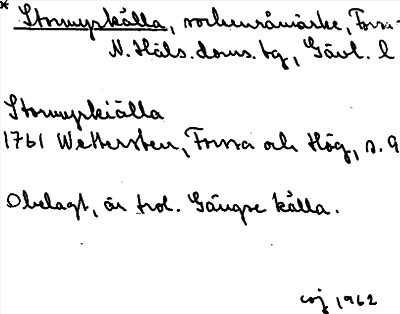 * Stormyrskälla, sockenråmärke, Forsa-
N. Häls. doms. bg, Gävl. l
Stormyrkiälla
1761 Wettersten, Forssa och Hög, s. 9
Obelagt, är trol. Gångse källa.
1962